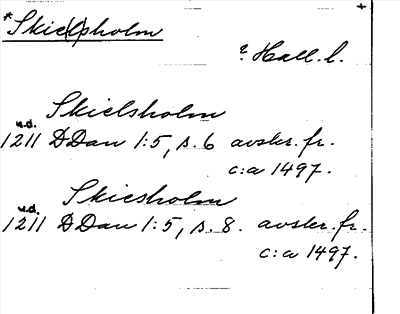 *Skielsholm
? Hall. l.
Skielsholm
u.d.
1211 DDan 1:5, s. 6 avskr. fr.
c:a 1497.
Skiesholm
u.d.
1211 DDan 1:5, s. 8. avskr. fr.
c:a 1497.